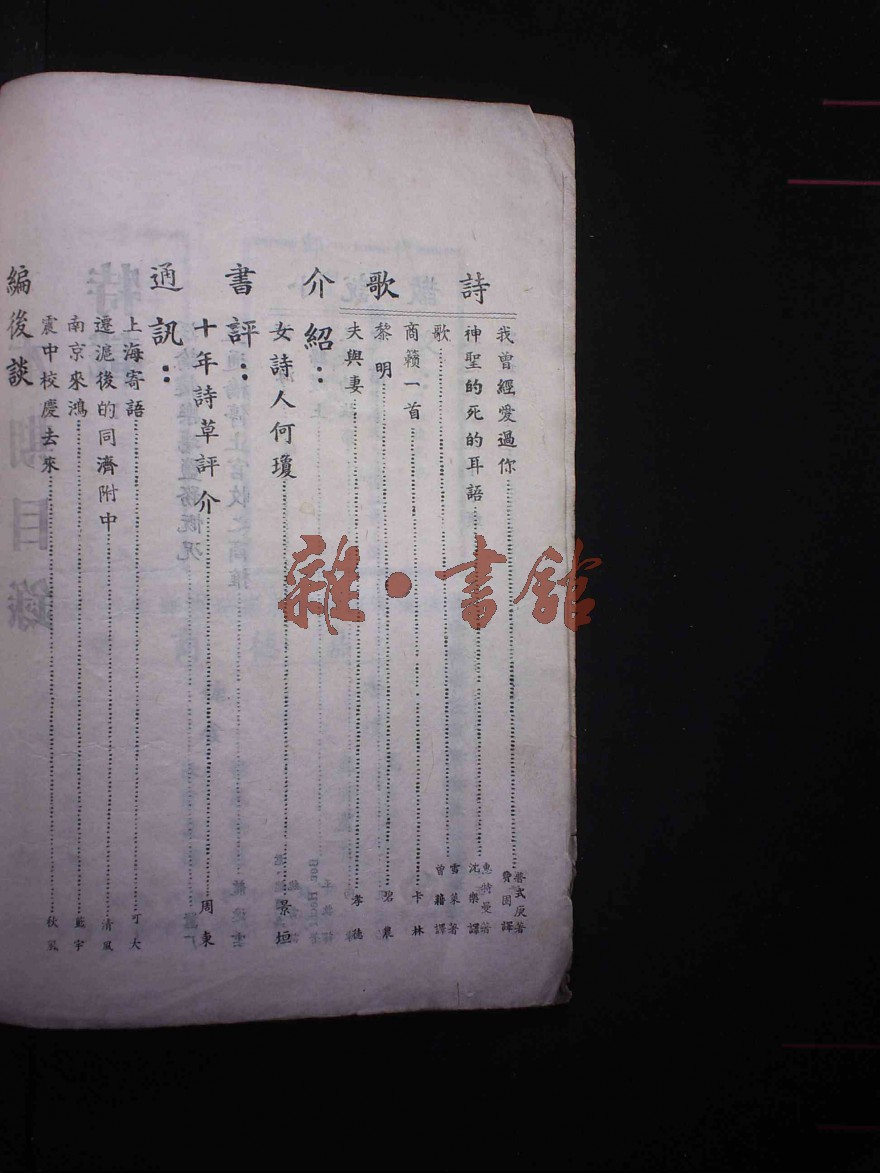 詩歌
我曾經愛過你 普式庚著 費園譯
神聖的死的耳語 惠特曼著 沈樂譯
歌 雪萊著 曾籍譯
商籟一首 卡林
黎明 碧皋
夫與妻 孝德
介紹：
女詩人何瓊 景垣
書評：
十年詩草評介 周東
通訊：
上海寄語 可大
遷滬後的同濟附中 清風
南京來鴻 藍宇
震中校慶去來 秋風
編後談
雜·書館